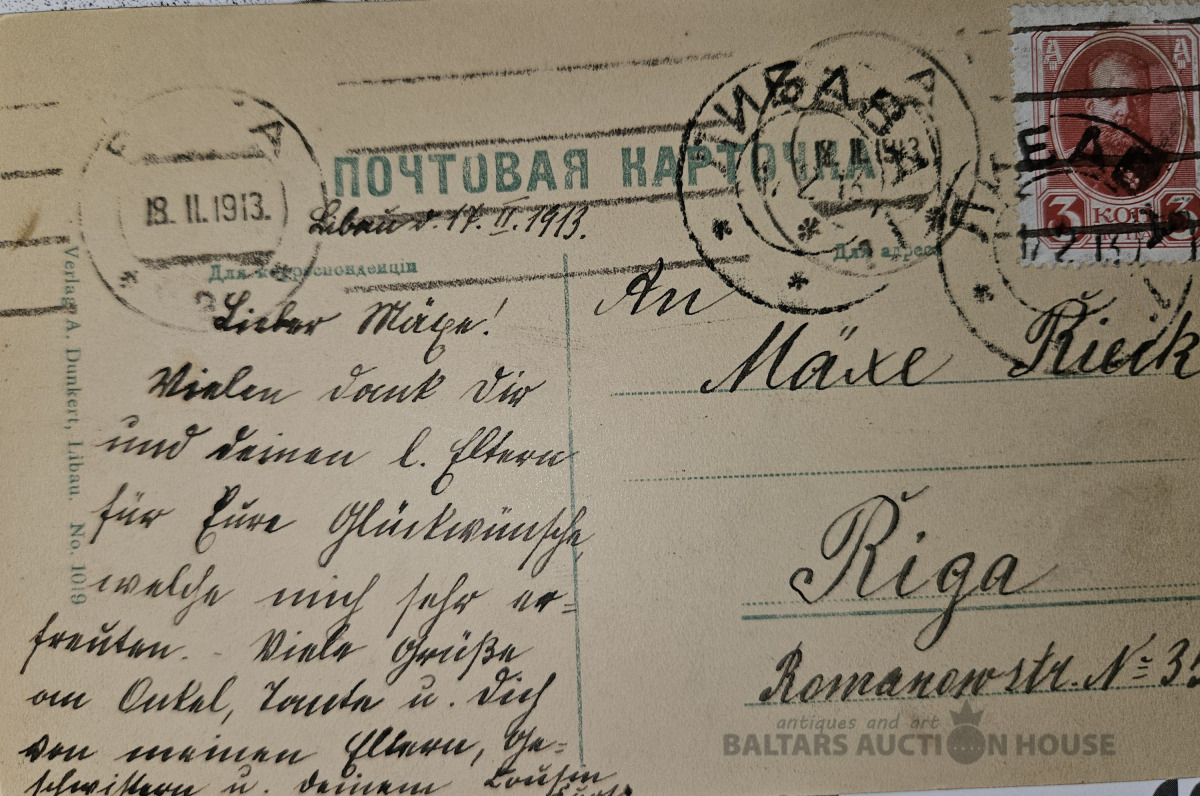 ПОЧТОВАЯ КАРТОЧКА
18. II. 1913.
ЛИБАВА
Libau d. 17. II. 1913.
Для корреспонденціи
Для адреса
3 КОП 3
Verlag A. Dunkert, Libau. No. 1019
Lieber Mäxe!
Vielen dank Dir
und deinen l. Eltern
für Eure Glückwünsche,
welche mich sehr er=
freuten. - Viele Grüße
an Onkel, Tante u. Dich
von meinen Eltern, Ge=
schwistern u. deinem Cousin
An
Mäxe Rieck
Riga
Romanowstr. № 35
antiques and art
BALTARS AUCTION HOUSE